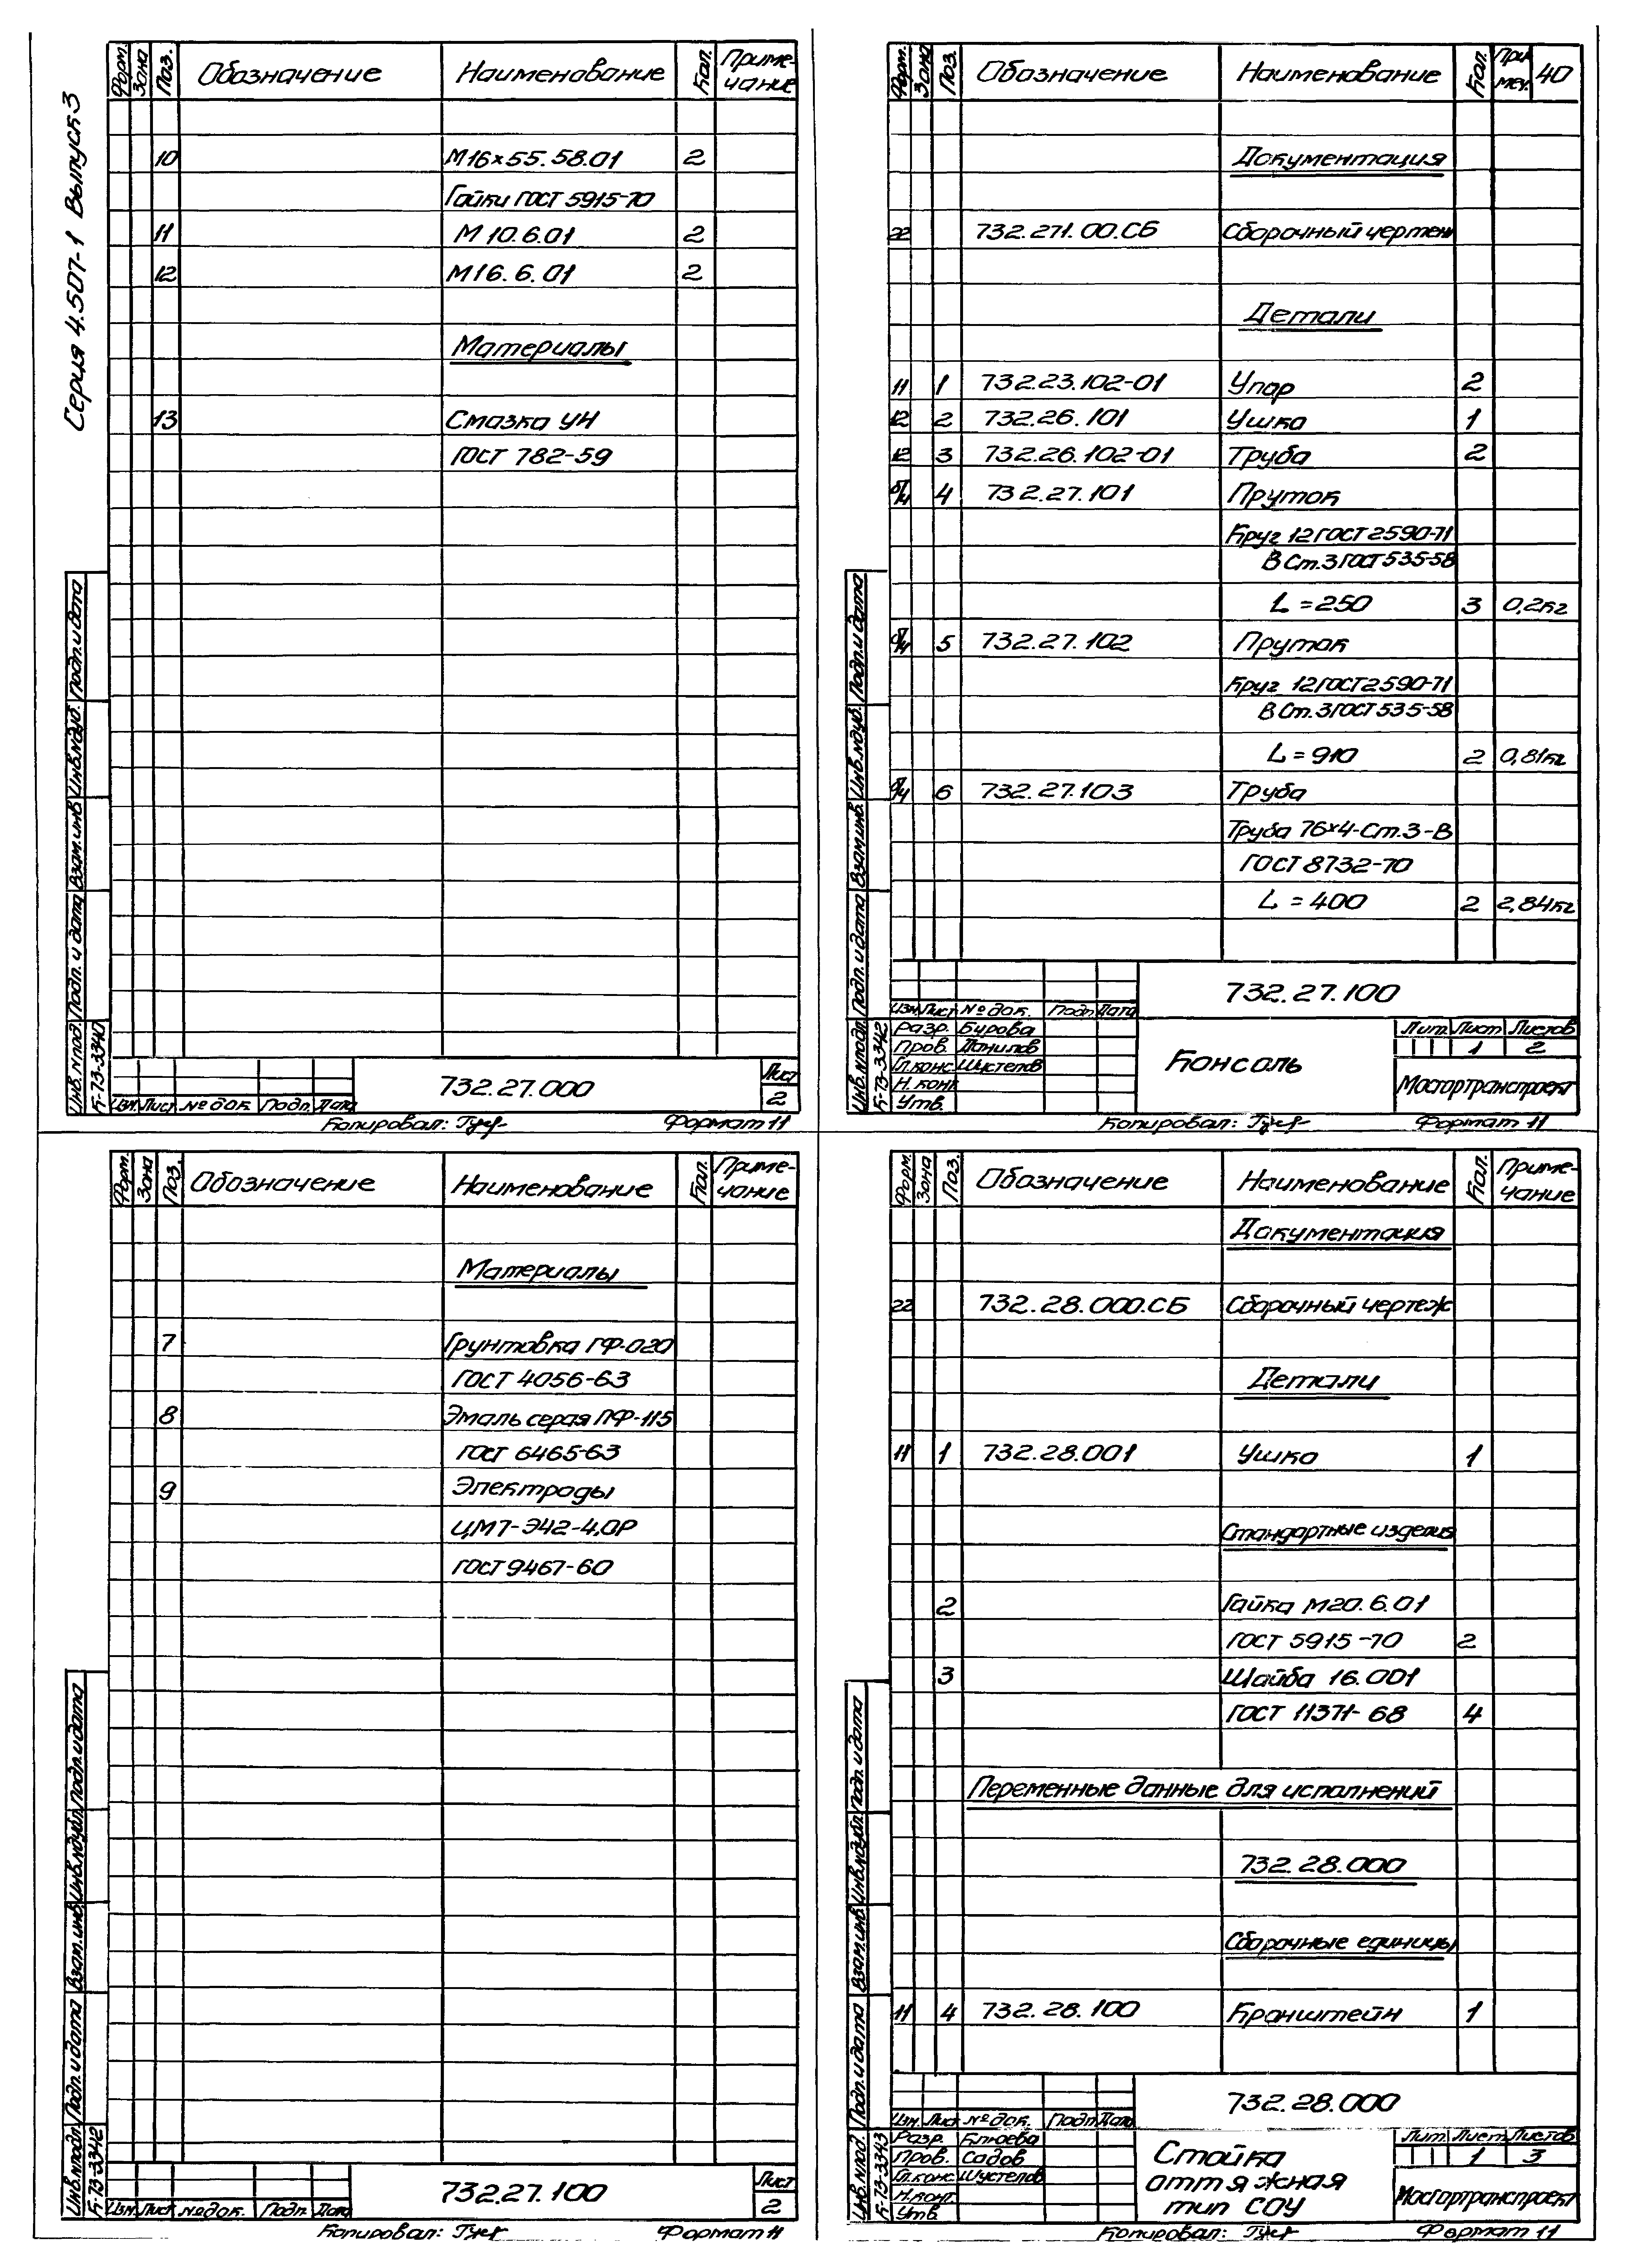 Серия 4.507-1 Выпуск 3
Форм. Зона Поз. Обозначение Наименование Кол. Приме-
чание
10 М16×55.58.01 2
Гайки ГОСТ 5915-70
11 М10.6.01 2
12 М16.6.01 2
Материалы
13 Смазка УН
ГОСТ 782-59
Инв.№подл. Подп. и дата Взам.инв Инв.№дуб. Подп.и дата
Б-73-3340
Изм. Лист №док. Подп. Дата
732.27.000
Лист
2
Копировал: Формат 11
Форм. Зона Поз. Обозначение Наименование Кол. При
меч. 40
Документация
22 732.271.00.СБ Сборочный чертеж
Детали
11 1 732.23.102-01 Упор 2
12 2 732.26.101 Ушко 1
12 3 732.26.102-01 Труба 2
б/ч 4 732.27.101 Пруток
Круг 12 ГОСТ 2590-71
В Ст.3 ГОСТ 535-58
L=250 3 0,2кг
б/ч 5 732.27.102 Пруток
Круг 12 ГОСТ 2590-71
В Ст.3 ГОСТ 535-58
L=910 2 0,81кг
б/ч 6 732.27.103 Труба
Труба 76×4-Ст.3-В
ГОСТ 8732-70
L=400 2 2,84кг
Инв.№подл. Подп. и дата Взам.инв. Инв.№дуб. Подп. и дата
Б-73-3342
732.27.100
Изм. Лист №док. Подп Дата
Разр. Бурова
Пров. Данилов
Гл.конс. Шустелов
Н. конт
Утв.
Консоль
Лит. Лист Листов
1 2
Мосгортранспроект
Копировал: Формат 11
Форм. Зона Поз. Обозначение Наименование Кол. Приме-
чание
Материалы
7 Грунтовка ГФ-020
ГОСТ 4056-63
8 Эмаль серая ПФ-115
ГОСТ 6465-63
9 Электроды
ЦМ7-Э42-4,0Р
ГОСТ 9467-60
Инв.№подл. Подп. и дата Взам.инв. Инв.№дубл. Подп.и дата
Б-73-3342
Изм. Лист №док. Подп. Дата
732.27.100
Лист
2
Копировал: Формат 11
Форм. Зона Поз. Обозначение Наименование Кол. Приме-
чание
Документация
22 732.28.000.СБ Сборочный чертеж
Детали
11 1 732.28.001 Ушко 1
Стандартные изделия
2 Гайка М20.6.01
ГОСТ 5915-70 2
3 Шайба 16.001
ГОСТ 11371-68 4
Переменные данные для исполнений
732.28.000
Сборочные единицы
11 4 732.28.100 Кронштейн 1
Инв.№под. Подп. и дата Взам.инв. Инв.№дубл. Подп. и дата
Б-73-3343
732.28.000
Изм. Лист №док. Подп Дата
Разр. Блюева
Пров. Садов
Гл.конс. Шустелов
Н.конт.
Утв.
Стойка
оттяжная
тип СОУ
Лит. Лист Листов
1 3
Мосгортранспроект
Копировал: Формат 11